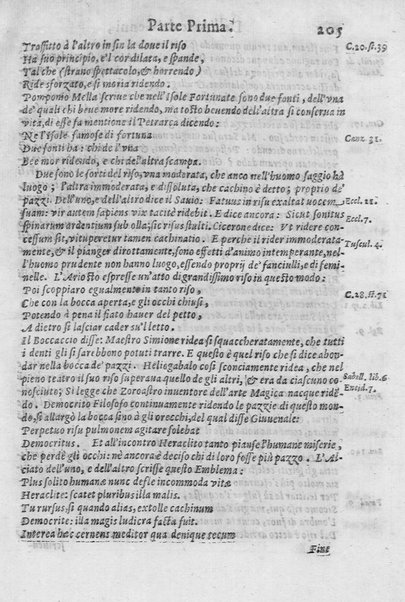 Parte Prima. 205
Trafitto à l'altro in sin la done il riso
Ha suo principio, e'l cor dilata, e spande,
Tal che (strano spettacolo, & horrendo)
Ride sforzato, e si moria ridendo.
C. 20. st. 39
Pomponio Mella scriue che nell'Isole Fortunate sono due fonti, dell'vna
de' quali chi beue more ridendo, ma tosto beuendo dell'altra si conserua in
vita, di esse fa mentione il Petrarca dicendo:
Ne l'Isole famose di fortuna
Due fonti ha: chi de l'vna
Canz. 31.
Bee mor ridendo, e chi del'altra scampa.
Due sono le sorti del riso, vna moderata, che anco nell'huomo saggio hà
luogo; l'altra immoderata, e dissoluta, che cachino è detto; proprio de'
pazzi. Dell'vno, e dell'altro dice il Sauio: Fatuus in risu exaltat uocem
suam: vir autem sapiens vix tacitè ridebit. E dice ancora: Sicut sonitus
Eccl. 21.
spinarum ardentium sub olla, sic risus stulti. Cicerone dice: Vt ridere con-
Ecel. 7.
cessum sit, vituperetur tamen cachinatio. E perche il rider immoderata-
mente, & il pianger dirottamente, sono effetti d'animo intemperante, nel-
Tuscul. 4.
l'huomo prudente non hanno luogo, essendo proprij de' fanciulli, e di femi-
nelle. L'Ariosto espresse un'atto digrandissimo riso in questo modo:
Poi scoppiaro egualmente in tanto riso,
C. 28. st. 71
Che con la bocca aperta, e gli occhi chiusi,
Potendo à pena il fiato hauer del petto,
A dietro si lasciar cader su'l letto.
Il Boccaccio disse: Maestro Simione ridea sì squaccheratamente, che tutti
i denti gli si sarebbono potuti trarre. E questo è quel riso che si dice abon-
dar nella bocca de' pazzi. Heliogabalo così sconciamente ridea, che nel
Sabell. lib. 6.
pieno teatro il suo riso superaua quello de gli altri, & era da ciascuno co-
Eneid. 7.
nosciuto; Si legge che Zoroastro inuentore dell'arte Magica nacque riden-
do. Democrito Filosofo continuamente ridendo le pazzie di questo mon-
do, si allargò la bocca sino à gli orecchi, del qual disse Giuuenale:
Perpetuo risu pulmonem agitare solebat
Democritus. Et all'incontro Heraclito tanto piause l'humane miserie,
che perdè gli occhi: nè ancora è deciso chi di loro fosse più pazzo. L'Al-
ciato dell'uno, e dell'altro scrisse questo Emblema:
Plus solito humanæ nunc defle incommoda vitæ
Heraclite: scatet pluribus illa malis.
Tu rursus, si quando alias, extolle cachinum
Democrite: illa magis ludicra facta fuit.
Interea hæc cernens meditor qua denique tecum
Fine